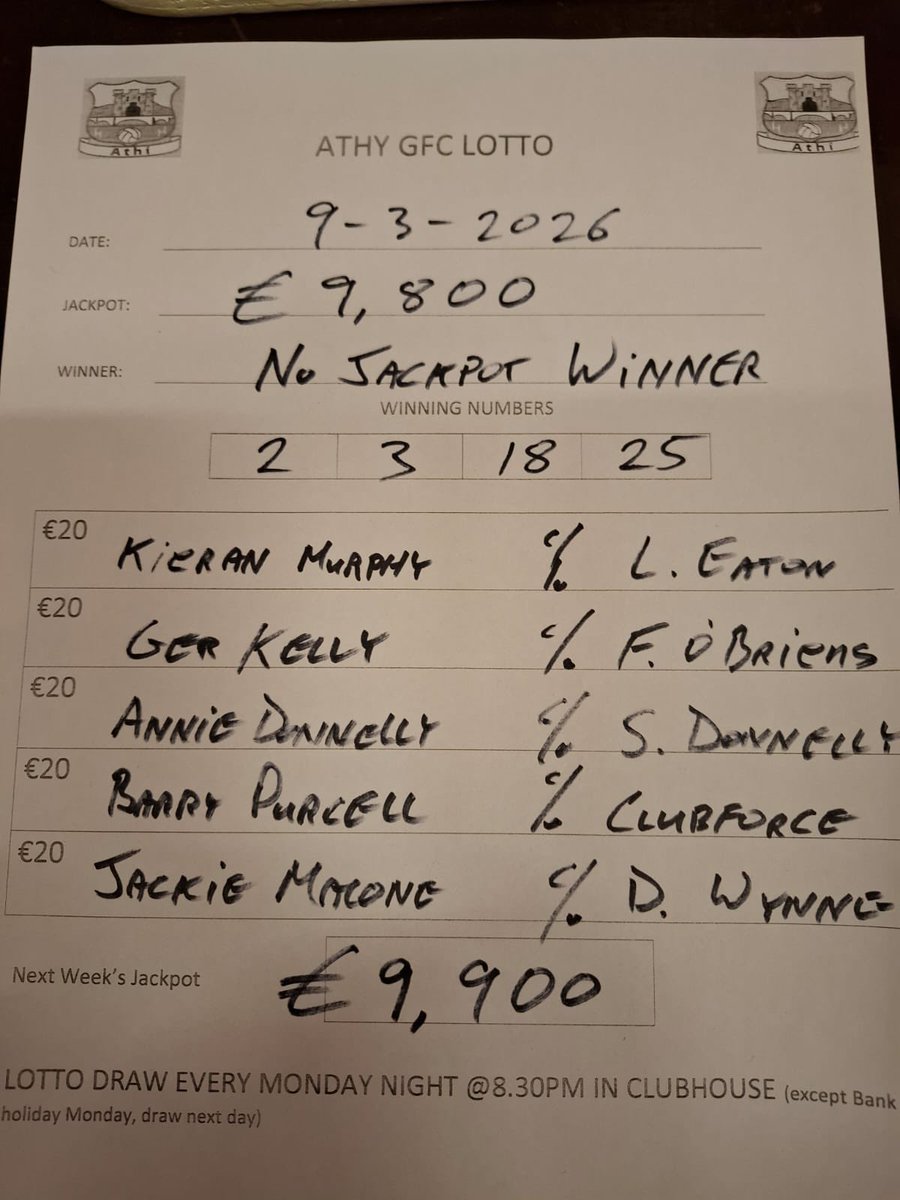 Athi
Athi
ATHY GFC LOTTO
DATE: 9-3-2026
JACKPOT: € 9,800
WINNER: No JACKPOT WINNER
WINNING NUMBERS
2 3 18 25
€20 KIERAN MURPHY c/. L. EATON
€20 GER KELLY c/. F. O'BRIENS
€20 ANNIE DONNELLY c/. S. DONNELLY
€20 BARRY PURCELL c/. CLUBFORCE
€20 JACKIE MALONE c/. D. WYNNE
Next Week's Jackpot € 9,900
LOTTO DRAW EVERY MONDAY NIGHT @8.30PM IN CLUBHOUSE (except Bank
holiday Monday, draw next day)